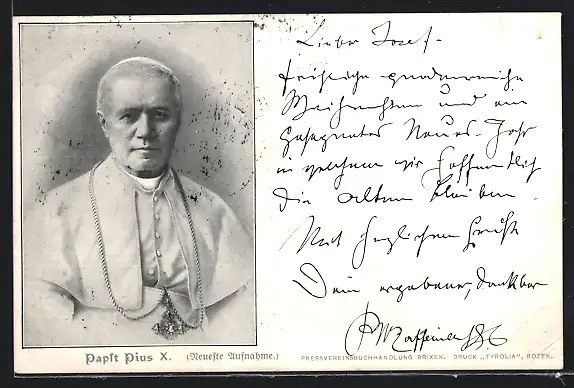 Lieber Josef -
Fröhliche gnadenreiche
Weihnachten und ein
Gesegnetes Neues-Jahr
in welchem wir hoffentlich
die alten bleiben.
Mit herzlichem Gruß
Dein ergebener, dankbar
Papst Pius X. (Neueste Aufnahme.)
PRESSVEREINSBUCHHANDLUNG BRIXEN. DRUCK „TYROLIA", BOZEN.